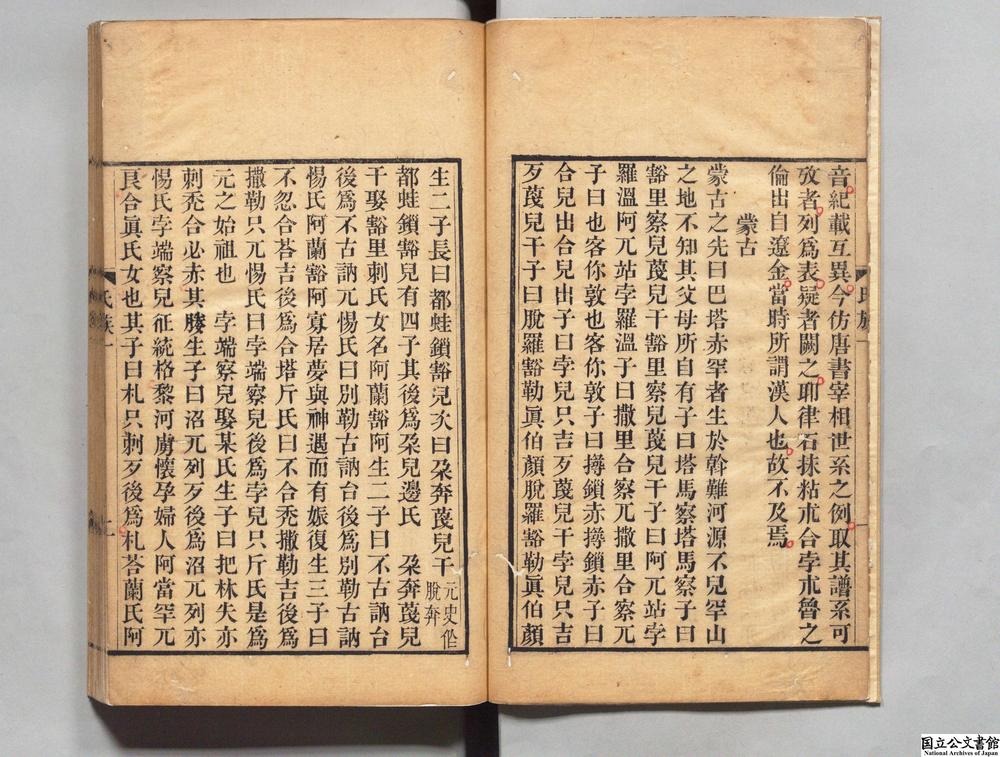 音紀載互異今仿唐書宰相世系之例取其譜系可
攷者列爲表疑者闕之耶律石抹粘朮合孛朮魯之
倫出自遼金當時所謂漢人也故不及焉
蒙古
蒙古之先曰巴塔赤罕者生於斡難河源不兒罕山
之地不知其父母所自有子曰塔馬察塔馬察子曰
豁里察兒蔑兒干豁里察兒蔑兒干子曰阿兀站孛
羅溫阿兀站孛羅溫子曰撒里合察兀撒里合察兀
子曰也客你敦也客你敦子曰撏鎖赤撏鎖赤子曰
合兒出合兒出子曰孛兒只吉歹蔑兒干孛兒只吉
歹蔑兒干子曰脫羅豁勒眞伯顏脫羅豁勒眞伯顏
氏族一
生二子長曰都蛙鎖豁兒次曰朶奔蔑兒干元史作脫奔
都蛙鎖豁兒有四子其後爲朶兒邊氏 朶奔蔑兒
干娶豁里剌氏女名阿蘭豁阿生二子曰不古訥台
後爲不古訥兀惕氏曰別勒古訥台後爲別勒古訥
惕氏阿蘭豁阿寡居夢與神遇而有娠復生三子曰
不忽合荅吉後爲合塔斤氏曰不合禿撒勒吉後爲
撒勒只兀惕氏曰孛端察兒後爲孛兒只斤氏是爲
元之始祖也 孛端察兒娶某氏生子曰把林失亦
剌禿合必赤其媵生子曰沼兀列歹後爲沼兀列亦
惕氏孛端察兒征統格黎河虜懷孕婦人阿當罕兀
良合眞氏女也其子曰札只剌歹後爲札荅蘭氏阿
氏族一
国立公文書館
National Archives of Japan